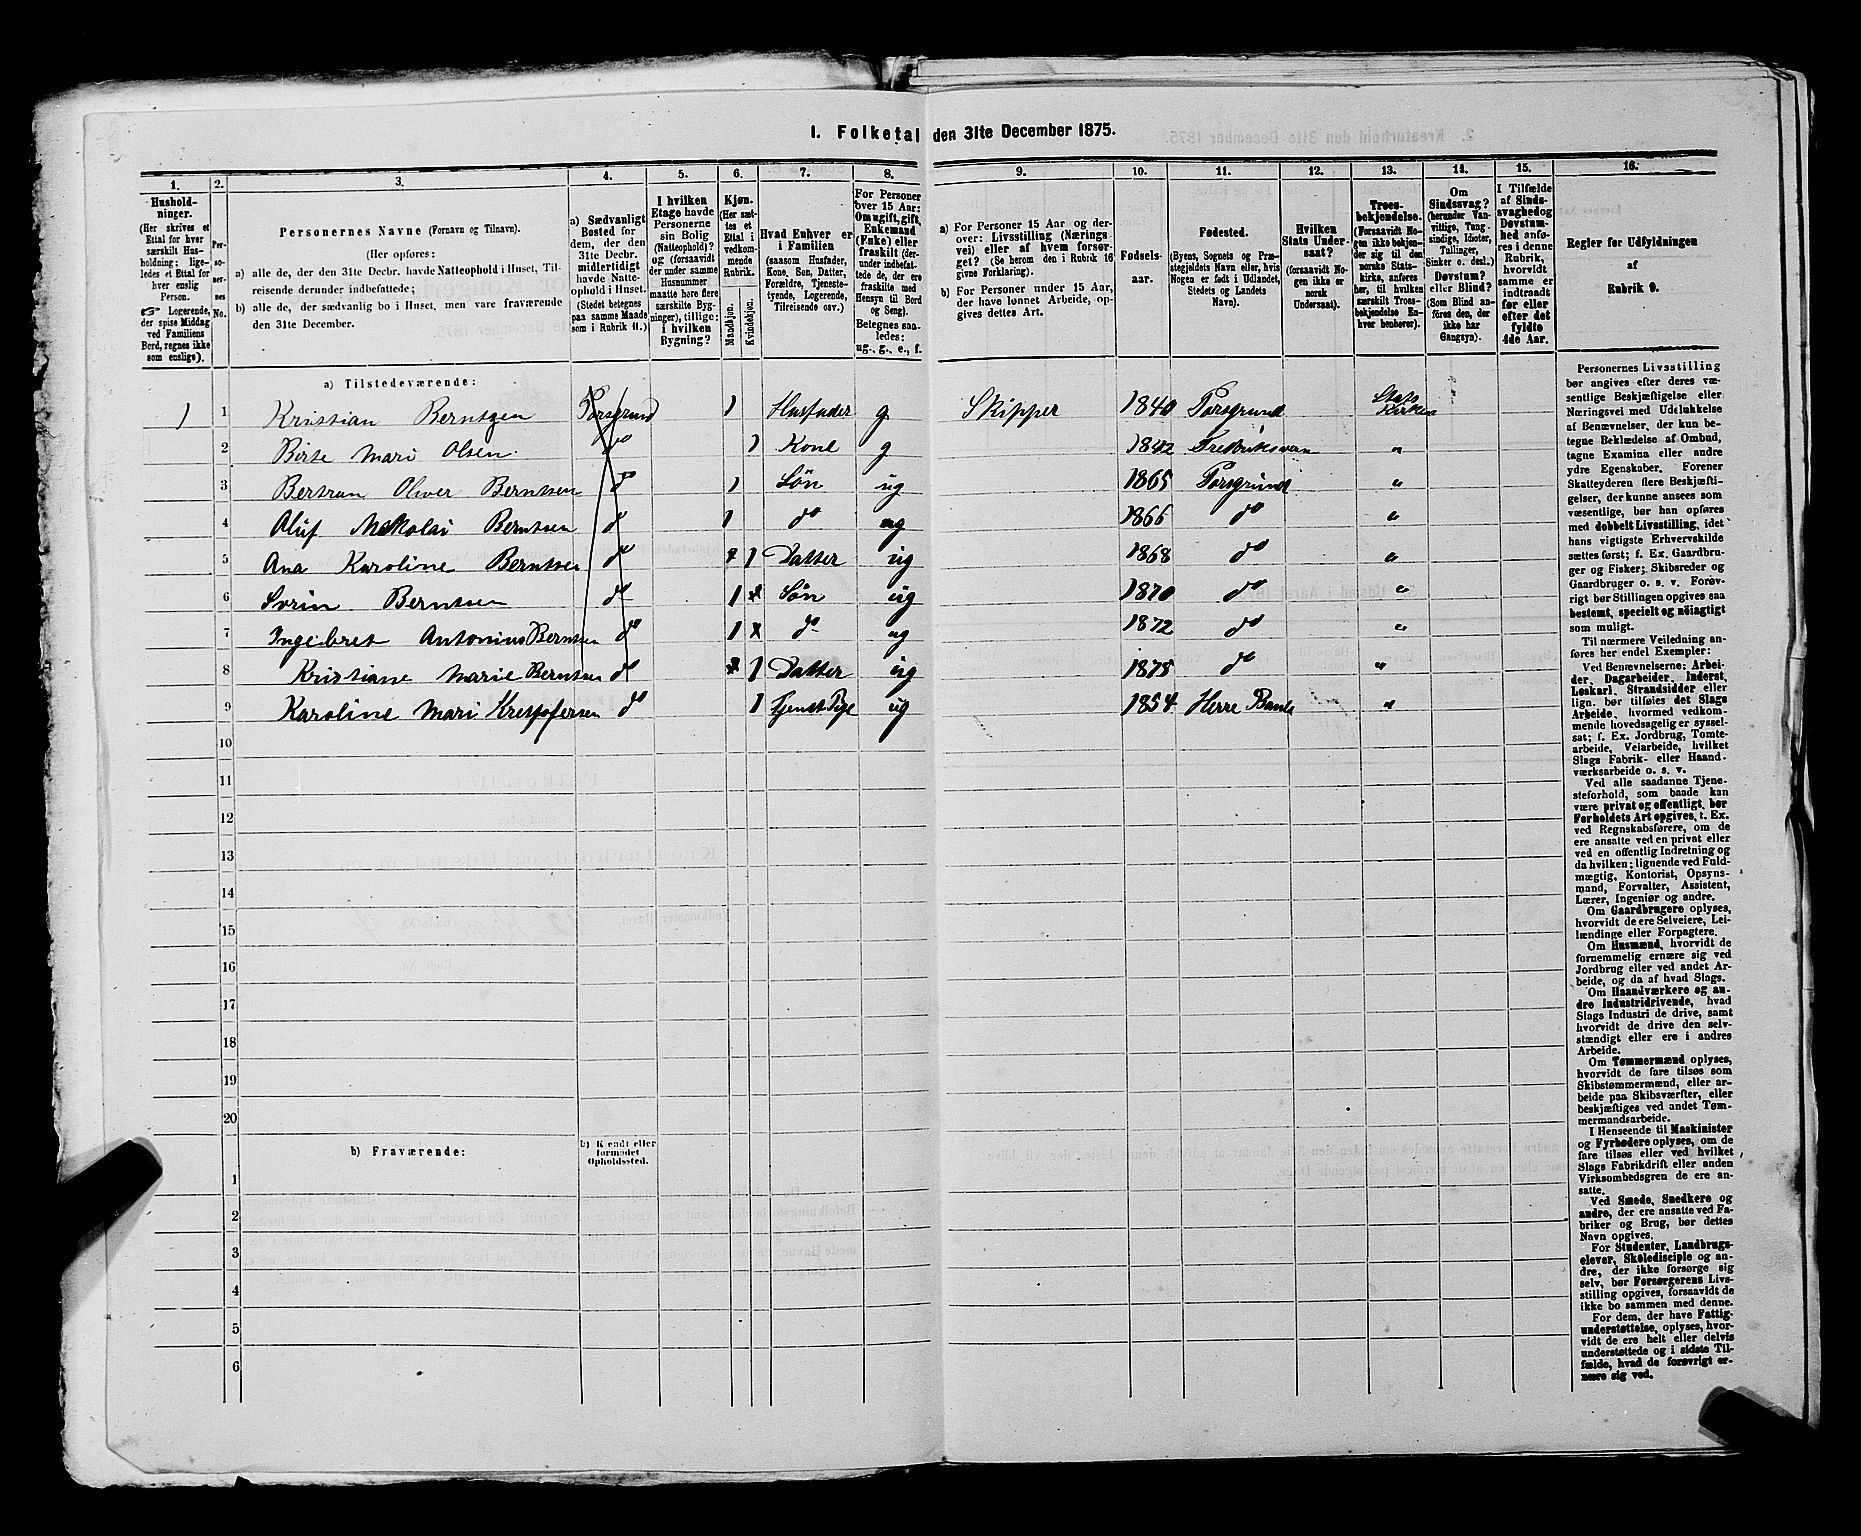 1. Folketal den 31te December 1875.
1. 2. 3. 4. 5. 6. 7. 8. 9. 10. 11. 12. 13. 14. 15. 16.
Hushold-
ninger.
(Her skrives et
Ettal for hver
særskilt Hus-
holdning; lige-
ledes et Ettal for
hver enslig
Person.
☞ Logerende,
der spise Middag
ved Familiens
Bord, regnes ikke
som enslige).
Per-
so-
ner-
nes
No.
Personernes Navne (Fornavn og Tilnavn).
(Her opføres:
a) alle de, der den 31te Decbr. havde Natteophold i Huset, Til-
reisende derunder indbefattede;
b) alle de, der sædvanlig bo i Huset, men vare fraværende
den 31te December.
a) Sædvanligt
Bosted for
dem, der den
31te Decbr.
midlertidigt
havde Natte-
ophold i Huset.
(Stedet betegnes
paa samme Maade
som i Rubrik 11.)
I hvilken
Etage havde
Personerne
sin Bolig
(Natteophold)?
og (forsaavidt
der under samme
Husnummer
maatte høre flere
særskilte Byg-
ninger), tillige:
i hvilken
Bygning?
Kjøn.
(Her sæt-
tes et
Ettal i
vedkom-
mende
Rubrik.
Mandkjøn.
Kvindekjøn.
Hvad Enhver er
i Familien
(saasom Husfader,
Kone, Søn, Datter,
Forældre, Tjeneste-
tyende, Logerende,
Tilreisende osv.)
For Personer
over 15 Aar:
Om ugift, gift,
Enkemand
(Enke) eller
fraskilt (der-
under indbefat-
tede de, der ere
fraskilte med
Hensyn til Bord
og Seng).
Betegnes saa-
ledes:
ug., g., e., f.
a) For Personer 15 Aar og der-
over: Livsstilling (Nærings-
vei) eller af hvem forsør-
get? (Se herom den i Rubrik 16
givne Forklaring).
b) For Personer under 15 Aar,
der have lønnet Arbeide, op-
gives dettes Art.
Fødsels-
aar.
Fødested.
(Byens, Sognets og Præ-
stegjeldets Navn eller, hvis
Nogen er født i Udlandet,
Stedets og Landets
Navn).
Hvilken
Stats Under-
saat?
(forsaavidt No-
gen ikke er
norsk
Undersaat).
Troes-
bekjendelse.
(Forsaavidt No-
gen ikke bekjen-
der sig til den
norske Stats-
kirke, anføres
her, til hvilken
særskilt Troes-
bekjendelse En-
hver henhører).
Om
Sindssvag?
(herunder Van-
vittige, Tung-
sindige, Idioter,
Tullinger,
Sinker o. desl.)
Døvstum?
eller Blind?
(Som Blind an-
føres den, der
ikke har
Gangsyn).
I Tilfælde
af Sinds-
svaghed og
Døvstum-
hed anfø-
res i denne
Rubrik,
hvorvidt
samme er
indtraadt
før eller
efter det
fyldte
4de Aar.
Regler for Udfyldningen
af
Rubrik 9.
a) Tilstedeværende:
1 1 Kristian Berntzen Porsgrund 1 Husfader g Skipper 1840 Porsgrund Stats Kirken
2 Birte Mari Olsen do 1 Kone g 1842 Fredriksværn "
3 Bertran Oliver Berntsen do 1 Søn ug 1865 Porsgrund "
4 Oluf Nikolai Berntsen do 1 do ug 1866 do "
5 Ana Karoline Berntsen do 1 Datter ug 1868 do "
6 Sørin Berntsen do 1 Søn ug 1870 do "
7 Ingebret Antonius Berntsen do 1 do ug 1872 do "
8 Kristiane Marie Berntsen do 1 Datter ug 1875 do "
9 Karoline Mari Kristofersen do 1 Tjenst Pige ug 1854 Herre Bamle "
10
11
12
13
14
15
16
17
18
19
20
b) Fraværende:
b) Kjendt eller
formodet
Opholdssted.
1
2
3
4
5
6
Personernes Livsstilling
bør angives efter deres væ-
sentlige Beskjæftigelse eller
Næringsvei med Udelukkelse
af Benævnelser, der kun be-
tegne Beklædelse af Ombud,
tagne Examina eller andre
ydre Egenskaber. Forener
Skatteyderen flere Beskjæfti-
gelser, der kunne ansees som
væsentlige, bør han opføres
med dobbelt Livsstilling, idet
hans vigtigste Erhvervskilde
sættes først; f. Ex. Gaardbru-
ger og Fisker; Skibsreder og
Gaardbruger o. s. v. Forøv-
rigt bør Stillingen opgives saa
bestemt, specielt og nøiagtigt
som muligt.
Til nærmere Veiledning an-
føres her endel Exempler:
Ved Benævnelserne: Arbei-
der, Dagarbeider, Inderst,
Løskarl, Strandsidder eller
lign. bør tilføies det Slags
Arbeide, hvormed vedkom-
mende hovedsagelig er syssel-
sat; f. Ex. Jordbrug, Tomte-
arbeide, Veiarbeide, hvilket
Slags Fabrik- eller Haand-
værksarbeide o. s. v.
Ved alle saadanne Tjene-
steforhold, som baade kan
være privat og offentligt, bør
Forholdets Art opgives, t. Ex.
ved Regnskabsførere, om de
ere ansatte ved en privat eller
ved en offentlig Indretning og
da hvilken; lignende ved Fuld-
mægtig, Kontorist, Opsyns-
mand, Forvalter, Assistent,
Lærer, Ingeniør og andre.
Om Gaardbrugere oplyses,
hvorvidt de ere Selveiere, Lei-
lændinge eller Forpagtere.
Om Husmænd, hvorvidt de
fornemmelig ernære sig ved
Jordbrug eller ved andet Ar-
beide, og da af hvad Slags.
Om Haandværkere og an-
dre Industridrivende, hvad
Slags Industri de drive, samt
hvorvidt de drive den selv-
stændigt eller ere i andres
Arbeide.
Om Tømmermænd oplyses,
hvorvidt de fare tilsøs som
Skibstømmermænd, eller ar-
beide paa Skibsværfter, eller
beskjæftiges ved andet Tøm-
mermandsarbeide.
I Henseende til Maskinister
og Fyrbødere oplyses, om de
fare tilsøs eller ved hvilket
Slags Fabrikdrift eller anden
Virksomhedsgren de ere an-
satte.
Ved Smede, Snedkere og
andre, der ere ansatte ved Fa-
briker og Brug, bør dettes
Navn opgives.
For Studenter, Landbrugs-
elever, Skoledisciple og an-
dre, der ikke forsørge sig
selv, bør Forsørgerens Livs-
stilling opgives, forsaavidt de
ikke bo sammen med denne.
For dem, der have Fattig-
understøttelse, oplyses, hvor-
vidt de ere helt eller delvis
understøttede og i sidste Til-
fælde, hvad de forøvrigt er-
nære sig ved.